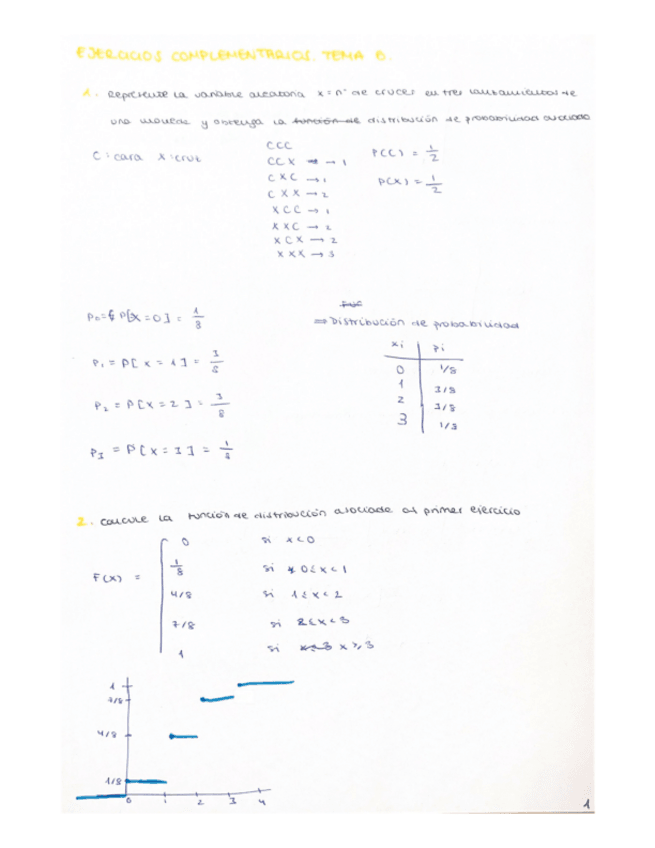 EJERCICIOS COMPLEMENTARIOS. TEMA 6.
1. Represente la variable aleatoria x = nº de cruces en tres lanzamientos de
una moneda y obtenga la función de distribución de probabilidad asociada
C: cara X: cruz
CCC
CCX → 1
CXC → 1
CXX → 2
XCC → 1
XXC → 2
XCX → 2
XXX → 3
P(C) = 1/2
P(X) = 1/2
P₀ = P[X = 0] = 1/8
P₁ = P[X = 1] = 3/8
P₂ = P[X = 2] = 3/8
P₃ = P[X = 3] = 1/8
⇒ Distribución de probabilidad
xi pi
0 1/8
1 3/8
2 3/8
3 1/8
2. Calcule la función de distribución asociada al primer ejercicio
F(x) =
0 si x < 0
1/8 si 0 ≤ x < 1
4/8 si 1 ≤ x < 2
7/8 si 2 ≤ x < 3
1 si x ≥ 3
1
7/8
4/8
1/8
0 1 2 3 4
1